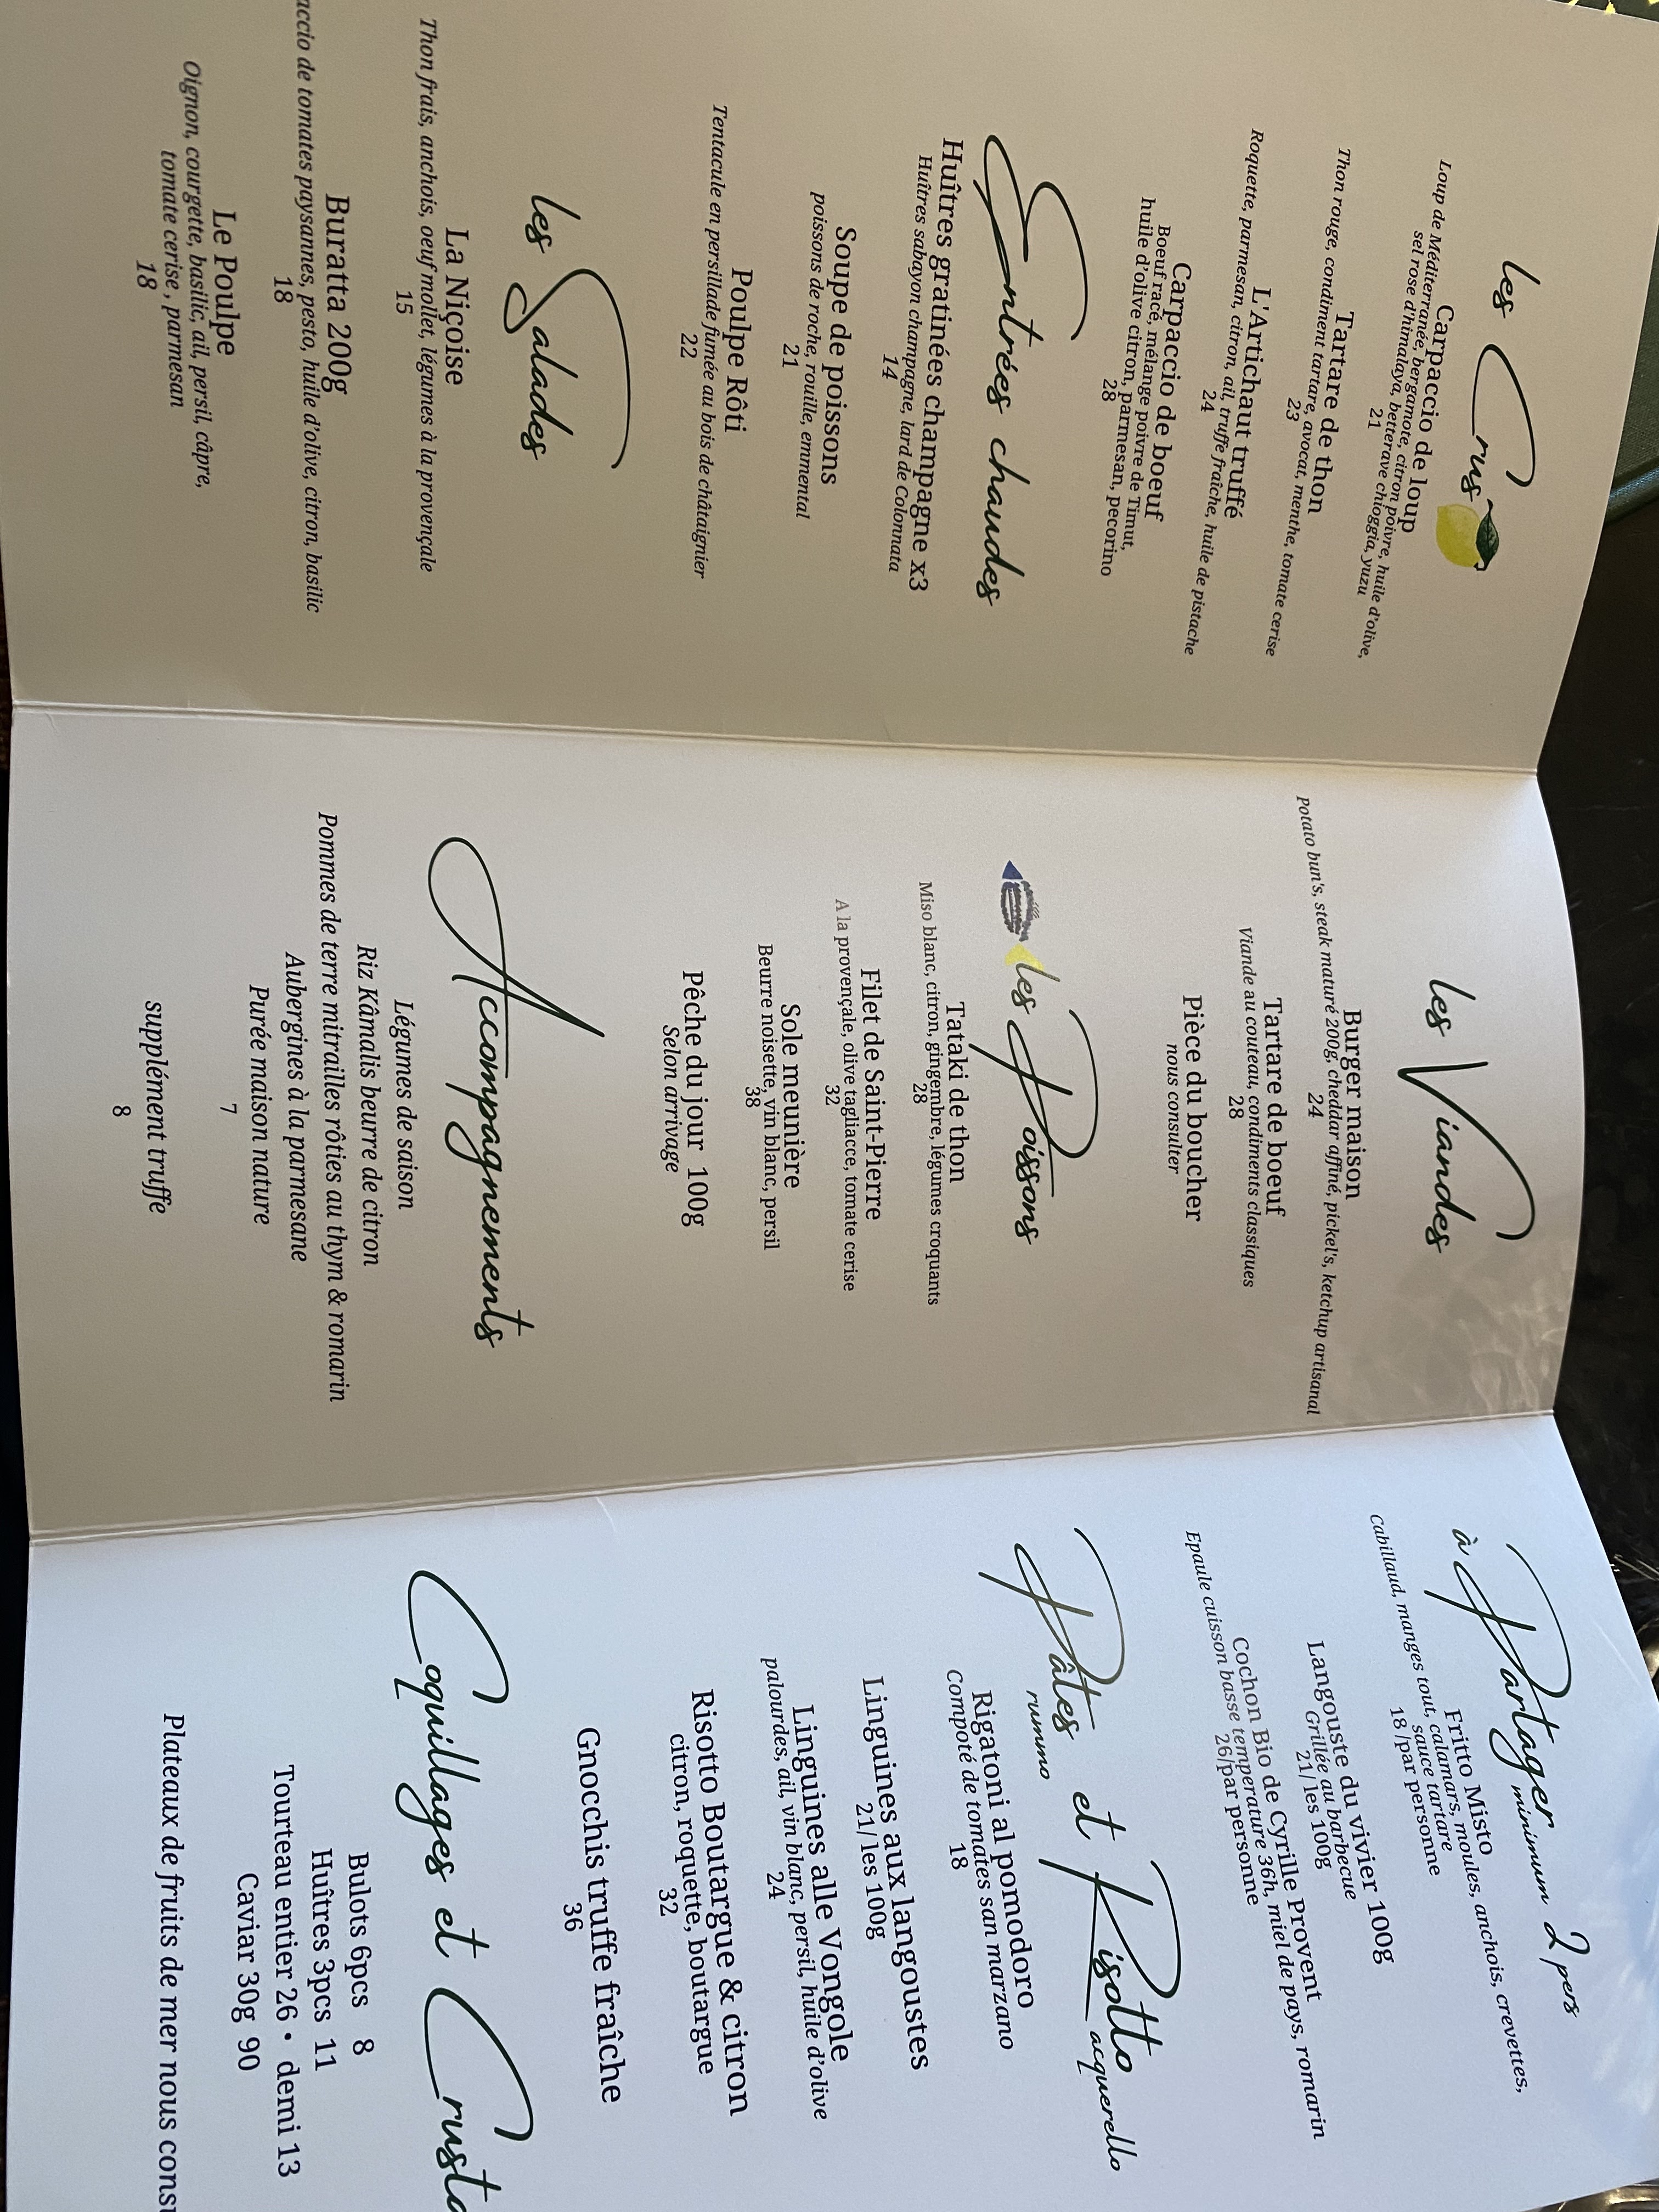 les Crus
Carpaccio de loup
Loup de Méditerranée, bergamote, citron poivre, huile d'olive,
sel rose d'himalaya, betterave chioggia, yuzu
21
Tartare de thon
Thon rouge, condiment tartare, avocat, menthe, tomate cerise
23
L'Artichaut truffé
Roquette, parmesan, citron, ail, truffe fraîche, huile de pistache
24
Carpaccio de boeuf
Boeuf racé, mélange poivre de Timut,
huile d'olive citron, parmesan, pecorino
28
Entrées chaudes
Huîtres gratinées champagne x3
Huîtres sabayon champagne, lard de Colonnata
14
Soupe de poissons
poissons de roche, rouille, emmental
21
Poulpe Rôti
Tentacule en persillade fumée au bois de châtaignier
22
les Salades
La Niçoise
Thon frais, anchois, oeuf mollet, légumes à la provençale
15
Buratta 200g
accio de tomates paysannes, pesto, huile d'olive, citron, basilic
18
Le Poulpe
Oignon, courgette, basilic, ail, persil, câpre,
tomate cerise, parmesan
18
les Viandes
Burger maison
Potato bun's, steak maturé 200g, cheddar affiné, pickel's, ketchup artisanal
24
Tartare de boeuf
Viande au couteau, condiments classiques
28
Pièce du boucher
nous consulter
les Poissons
Tataki de thon
Miso blanc, citron, gingembre, légumes croquants
28
Filet de Saint-Pierre
A la provençale, olive tagliacce, tomate cerise
32
Sole meunière
Beurre noisette, vin blanc, persil
38
Pêche du jour 100g
Selon arrivage
Accompagnements
Légumes de saison
Riz Kâmalis beurre de citron
Pommes de terre mitrailles rôties au thym & romarin
Aubergines à la parmesane
Purée maison nature
7
supplément truffe
8
à Partager minimum 2 pers
Fritto Misto
Cabillaud, manges tout, calamars, moules, anchois, crevettes,
sauce tartare
18/par personne
Langouste du vivier 100g
Grillée au barbecue
21/ les 100g
Cochon Bio de Cyrille Provent
Epaule cuisson basse temperature 36h, miel de pays, romarin
26/par personne
Pâtes et Risotto
rummo acquerello
Rigatoni al pomodoro
Compoté de tomates san marzano
18
Linguines aux langoustes
21/ les 100g
Linguines alle Vongole
palourdes, ail, vin blanc, persil, huile d'olive
24
Risotto Boutargue & citron
citron, roquette, boutargue
32
Gnocchis truffe fraîche
36
Coquillages et Crusta
Bulots 6pcs 8
Huîtres 3pcs 11
Tourteau entier 26 • demi 13
Caviar 30g 90
Plateaux de fruits de mer nous consu